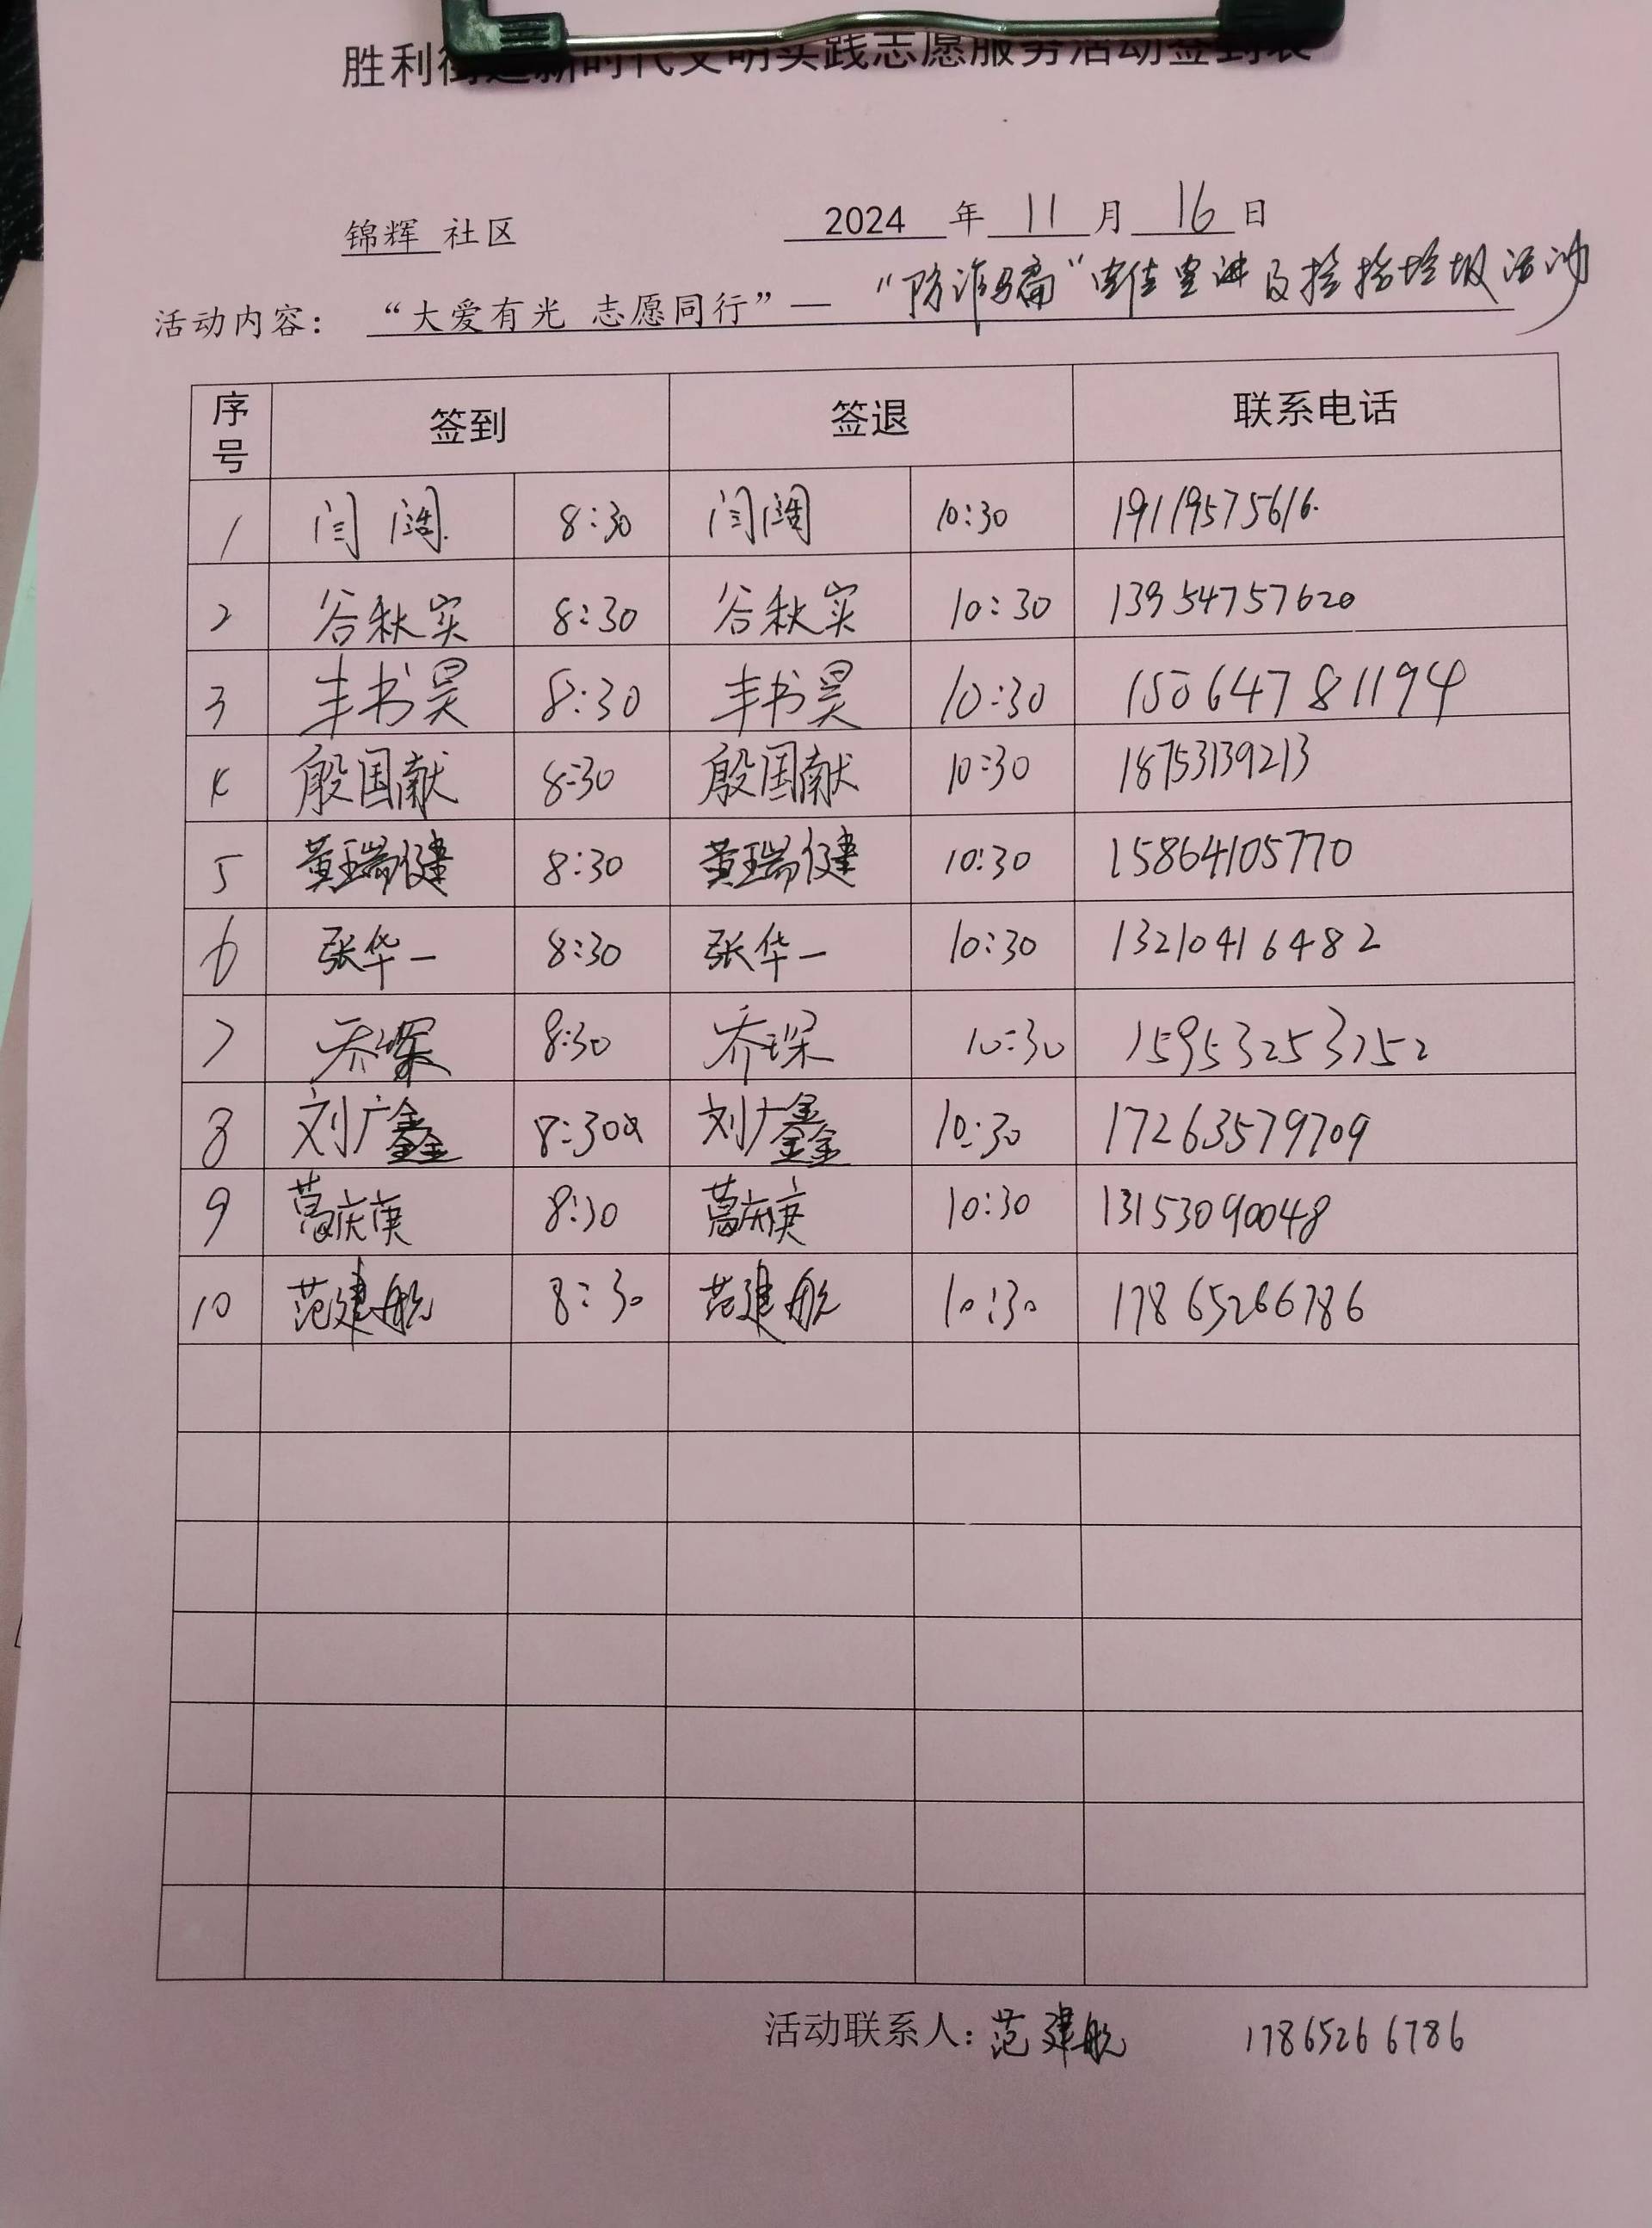 胜利街道新时代文明实践志愿服务活动签到表
锦辉 社区 2024 年 11 月 16 日
活动内容： “大爱有光 志愿同行”— “防诈骗” 宣讲及捡拾垃圾活动
序号 签到 签退 联系电话
1 闫阔 8:30 闫阔 10:30 19119575616
2 谷秋实 8:30 谷秋实 10:30 13954757620
3 丰书昊 8:30 丰书昊 10:30 15064781194
4 殷国献 8:30 殷国献 10:30 18753139213
5 黄瑞健 8:30 黄瑞健 10:30 15864105770
6 张华一 8:30 张华一 10:30 13210416482
7 乔琛 8:30 乔琛 10:30 15953253252
8 刘广鑫 8:30 刘广鑫 10:30 17263579709
9 葛庆庚 8:30 葛庆庚 10:30 13153090048
10 范建航 8:30 范建航 10:30 17865266786
活动联系人：范建航 17865266786